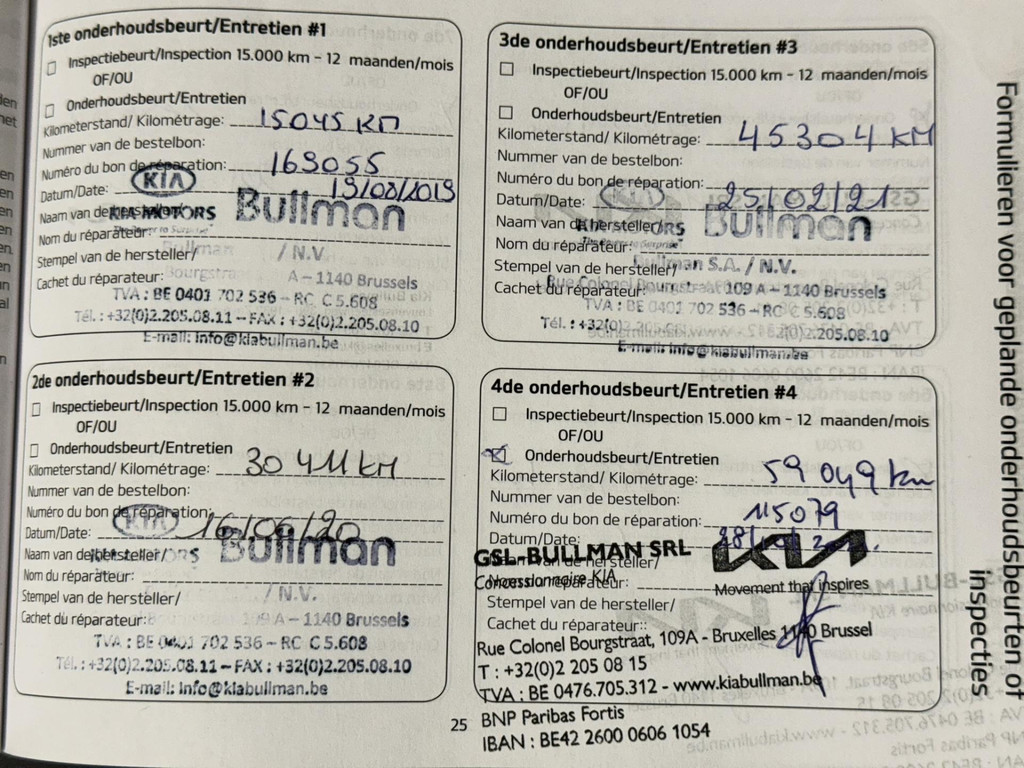 1ste onderhoudsbeurt/Entretien #1
Inspectiebeurt/Inspection 15.000 km – 12 maanden/mois
OF/OU
Onderhoudsbeurt/Entretien
Kilometerstand/ Kilométrage: 15045 KM
Nummer van de bestelbon:
Numéro du bon de réparation: 163055
Datum/Date: 13/08/2019
KIA
Naam van de hersteller/
KIA MOTORS Bullman
Nom du réparateur:
Stempel van de hersteller/ / N.V.
Cachet du réparateur: Bourgstra A – 1140 Brussels
TVA : BE 0401 702 536 – RC C 5.608
Tél. : +32(0)2.205.08.11 – FAX : +32(0)2.205.08.10
E-mail: info@kiabullman.be
2de onderhoudsbeurt/Entretien #2
Inspectiebeurt/Inspection 15.000 km – 12 maanden/mois
OF/OU
Onderhoudsbeurt/Entretien
Kilometerstand/ Kilométrage: 30 411 KM
Nummer van de bestelbon:
Numéro du bon de réparation:
KIA
Datum/Date: 16/06/20
Naam van de hersteller/ Bullman
Nom du réparateur:
Stempel van de hersteller/ / N.V.
Cachet du réparateur: 109 A – 1140 Brussels
TVA : BE 0401 702 536 – RC C 5.608
Tél. : +32(0)2.205.08.11 – FAX : +32(0)2.205.08.10
E-mail: info@kiabullman.be
3de onderhoudsbeurt/Entretien #3
Inspectiebeurt/Inspection 15.000 km – 12 maanden/mois
OF/OU
Onderhoudsbeurt/Entretien
Kilometerstand/ Kilométrage: 45304 KM
Nummer van de bestelbon:
Numéro du bon de réparation:
Datum/Date: 25/02/21
Naam van de hersteller/ Bullman
Nom du réparateur:
Stempel van de hersteller/ Bullman S.A. / N.V.
Cachet du réparateur: Rue Colonel Bourgstraat 109 A – 1140 Brussels
TVA : BE 0401 702 536 – RC C 5.608
Tél. : +32(0)2.205.08.10
E-mail: info@kiabullman.be
4de onderhoudsbeurt/Entretien #4
Inspectiebeurt/Inspection 15.000 km – 12 maanden/mois
OF/OU
Onderhoudsbeurt/Entretien
Kilometerstand/ Kilométrage: 59 049 km
Nummer van de bestelbon:
Numéro du bon de réparation: 115079
Datum/Date: 28/
GSL-BULLMAN SRL KIA
Naam van de hersteller/
Concessionnaire KIA Movement that inspires
Nom du réparateur:
Stempel van de hersteller/
Cachet du réparateur::
Rue Colonel Bourgstraat, 109A - Bruxelles 1140 Brussel
T : +32(0)2 205 08 15
TVA : BE 0476.705.312 - www.kiabullman.be
BNP Paribas Fortis
IBAN : BE42 2600 0606 1054
25
Formulieren voor geplande onderhoudsbeurten of
inspecties